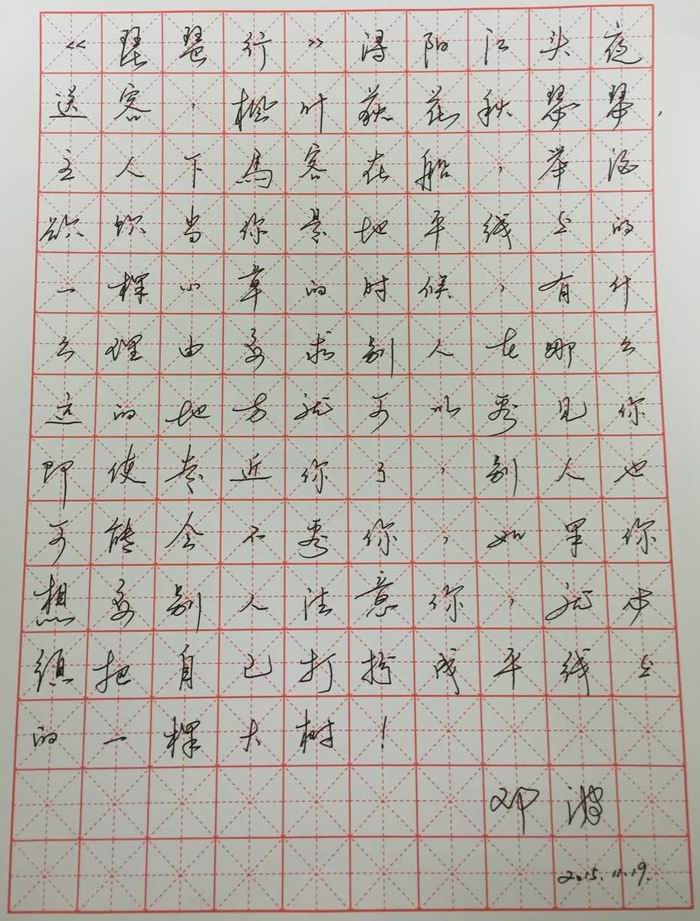 《琵琶行》浔阳江头夜
送客，枫叶荻花秋瑟瑟，
主人下馬客在船，举酒
欲饮当你是地平线上的
一棵小草的时候，有什
么理由要求别人在那么
远的地方就可以看见你
即使走近你了，别人也
可能会不看你，如果你
想要别人注意你，就必
須把自己打扮成平线上
的一棵大树！
邓
2015.11.19.